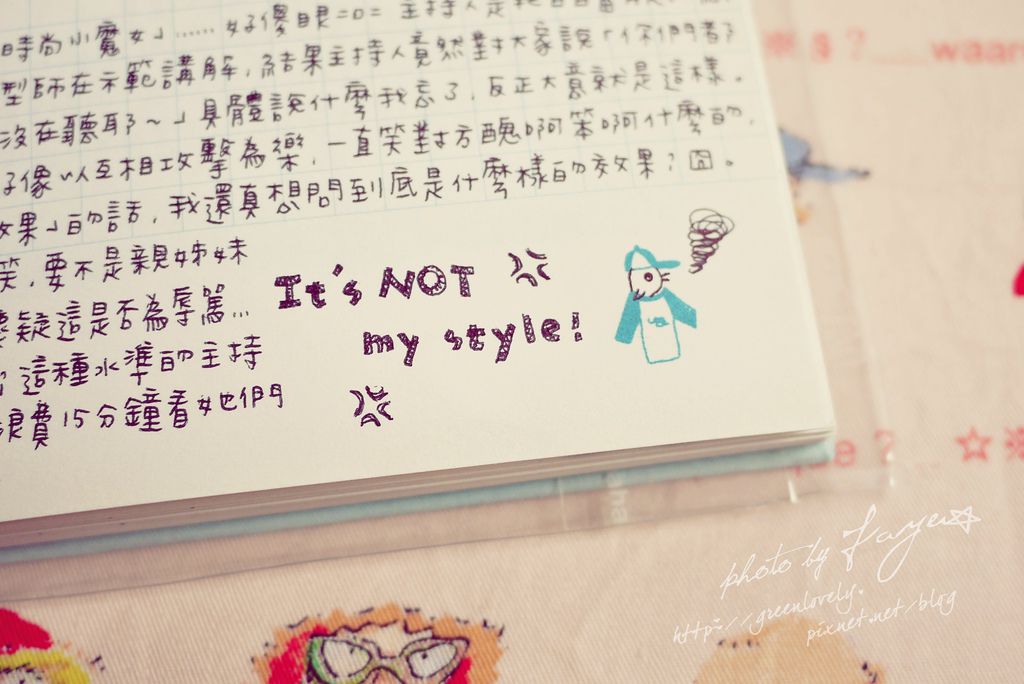 時尚小魔女」……好傻眼=口= 主持人是
型師在示範講解，結果主持人竟然對大家說「你們看了
沒在聽耶～」具體說什麼我忘了，反正大意就是這樣。
好像以互相攻擊為樂，一直笑對方醜啊笨啊什麼的，
效果」的話，我還真想問到底是什麼樣的效果？囧。
笑，要不是親姊妹
懷疑這是否為辱罵…
這種水準的主持
浪費15分鐘看她們
It's NOT
my style!
waar
? ☆※
photo by Faye☆
http://greenlovely.
pixnet.net/blog